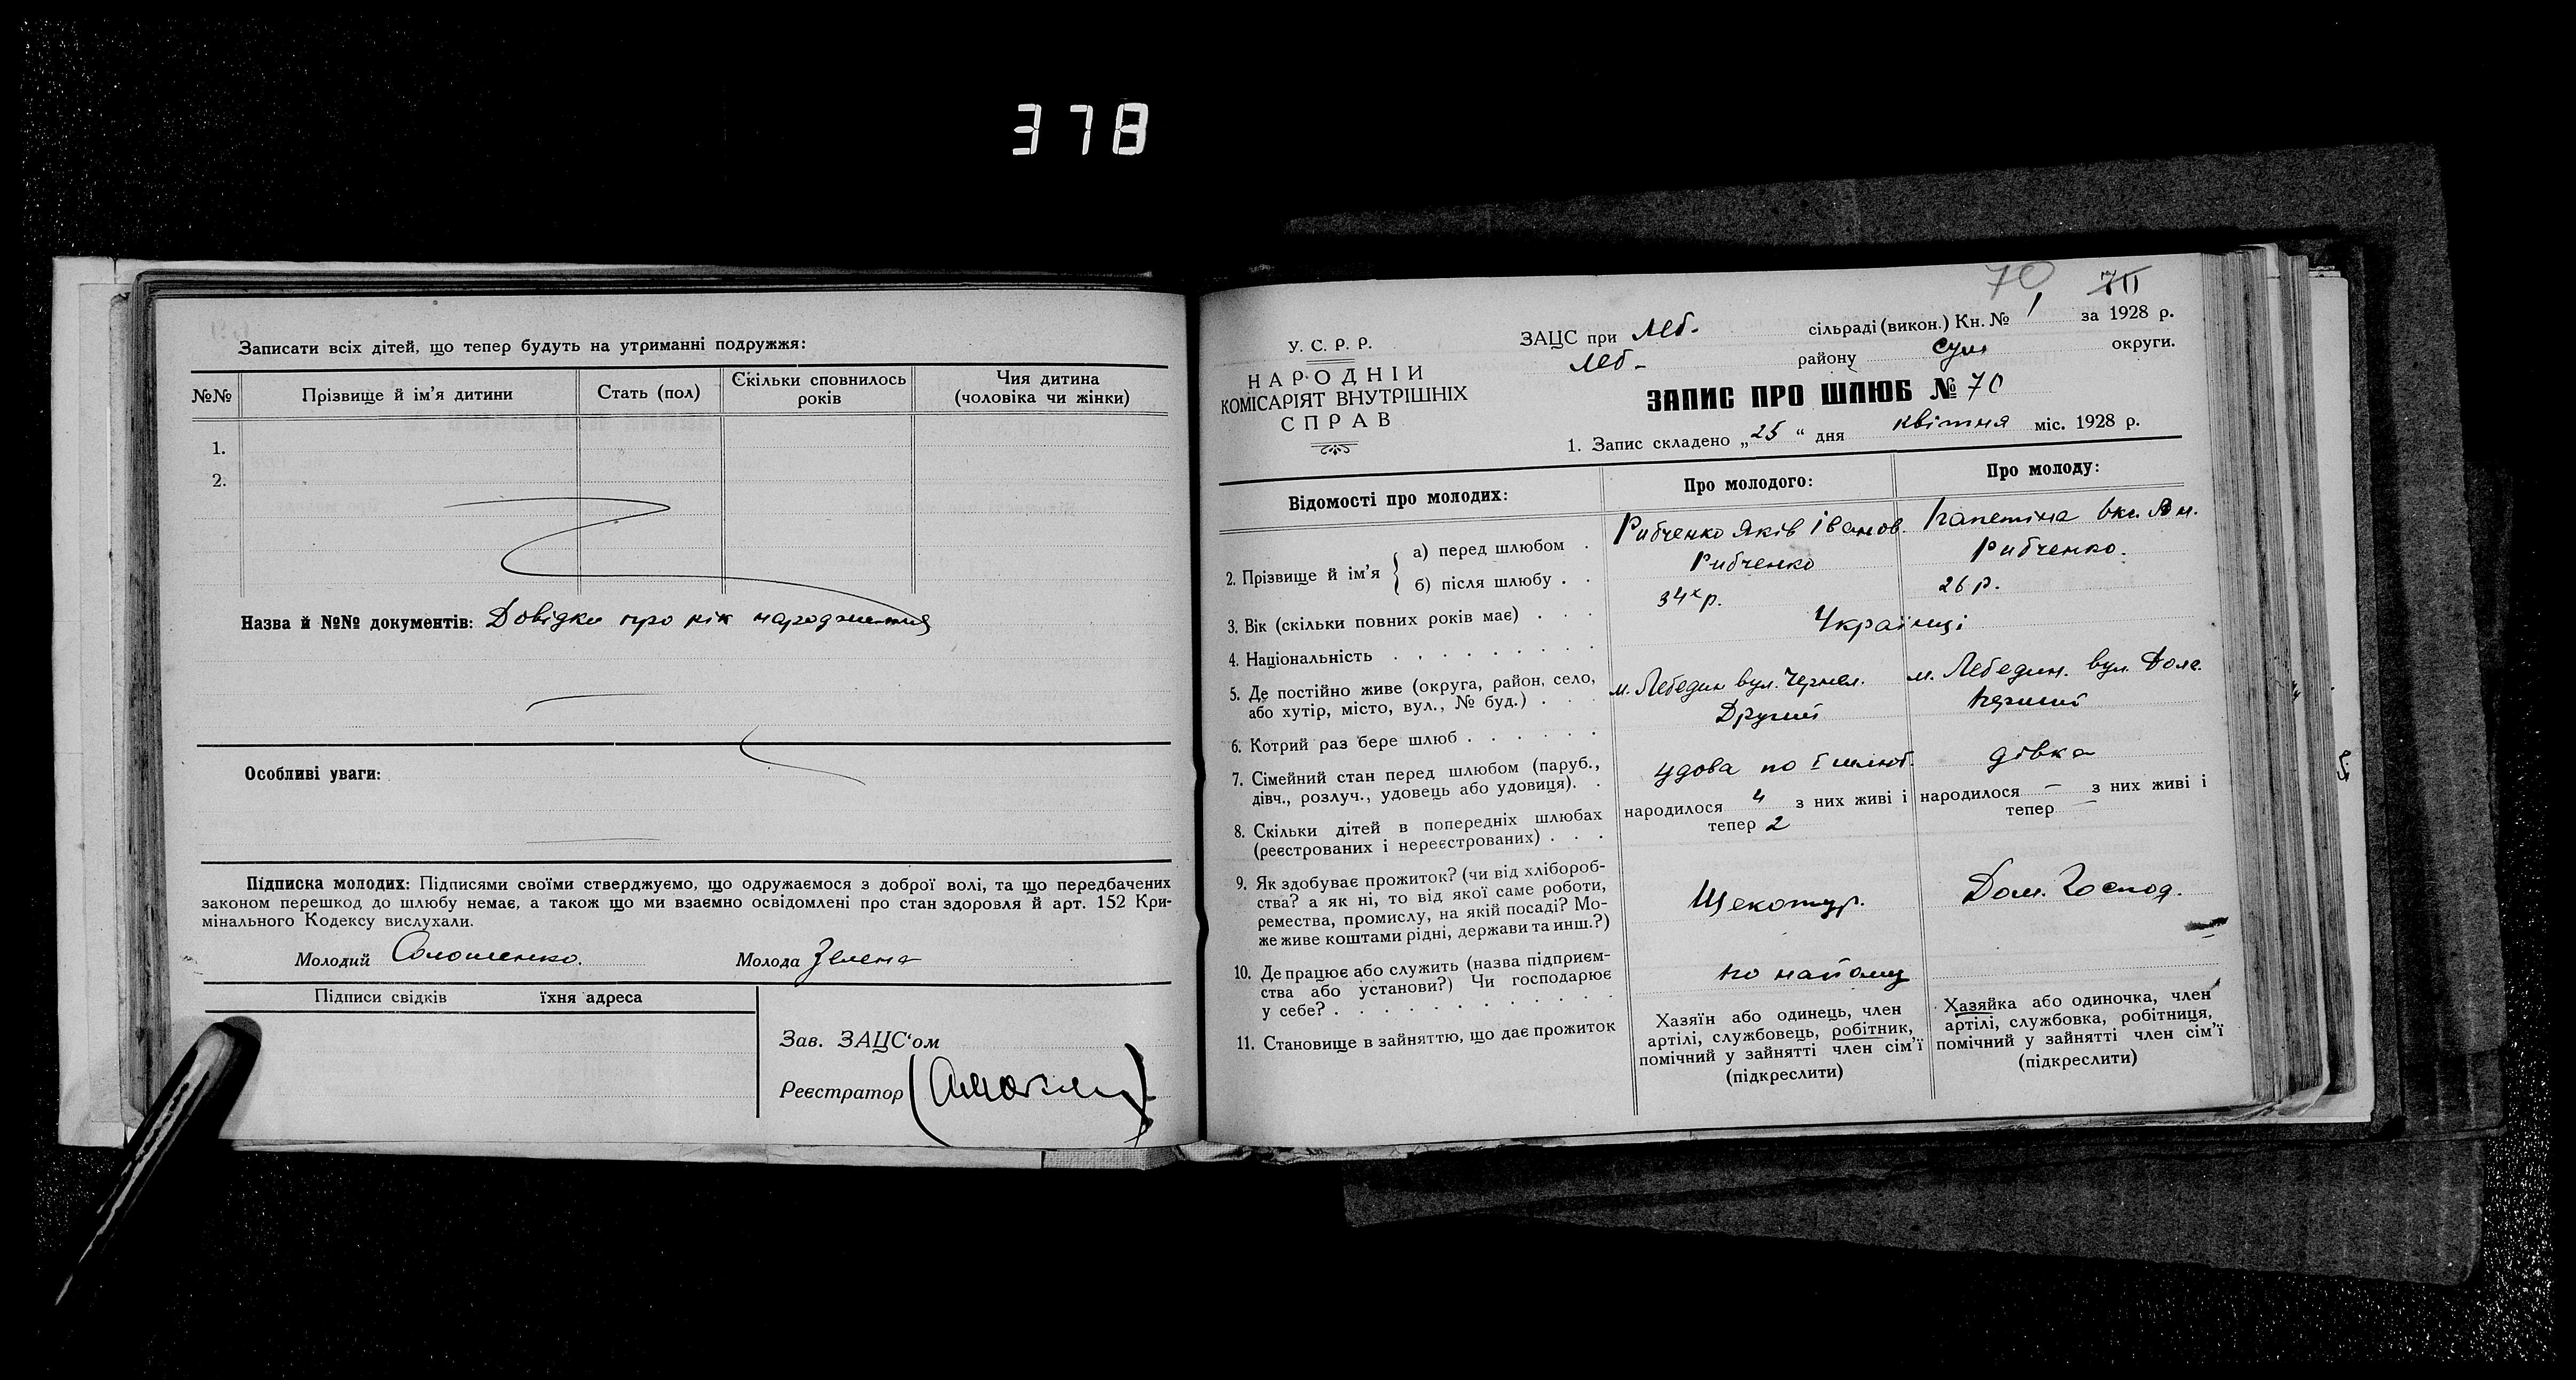 378
Записати всіх дітей, що тепер будуть на утриманні подружжя:
№№ Прізвище й ім'я дитини Стать (пол) Скільки сповнилось років Чия дитина (чоловіка чи жінки)
1.
2.
Назва й №№ документів: Довідки про рік народження
Особливі уваги:
Підписка молодих: Підписями своїми стверджуємо, що одружаємося з доброї волі, та що передбачених
законом перешкод до шлюбу немає, а також що ми взаємно освідомлені про стан здоровля й арт. 152 Кри-
мінального Кодексу вислухали.
Молодий Солошенко. Молода Зелена
Підписи свідків їхня адреса
Зав. ЗАЦС'ом
Реєстратор
70
У. С. Р. Р.
НАРОДНІЙ
КОМІСАРІЯТ ВНУТРІШНІХ
СПРАВ
ЗАЦС при Леб. сільраді (викон.) Кн. № 1 за 1928 р.
Леб. району Сум округи.
ЗАПИС ПРО ШЛЮБ № 70
1. Запис складено „25“ дня квітня міс. 1928 р.
Відомості про молодих: Про молодого: Про молоду:
2. Прізвище й ім'я { а) перед шлюбом . Рибченко Яків Іванов.
б) після шлюбу . . Рибченко Рибченко.
3. Вік (скільки повних років має) . . . 34х р. 26 р.
4. Національність . . . . . . . . . Українці
5. Де постійно живе (округа, район, село,
або хутір, місто, вул., № буд.) . . . м. Лебедин вул. Чернел. м. Лебедин. вул.
6. Котрий раз бере шлюб . . . . . . Другий Перший
7. Сімейний стан перед шлюбом (паруб.,
дівч., розлуч., удовець або удовиця). . удова по I шлюб. дівка
8. Скільки дітей в попередніх шлюбах
(реєстрованих і нереєстрованих) . . .
народилося 4 з них живі і
тепер 2
народилося — з них живі і
тепер —
9. Як здобуває прожиток? (чи від хлібороб-
ства? а як ні, то від якої саме роботи,
ремества, промислу, на якій посаді? Мо-
же живе коштами рідні, держави та инш.?)
Щекотур. Дом. Господ.
10. Де працює або служить (назва підприєм-
ства або установи?) Чи господарює
у себе? . . . . . . . . . . . .
по найому
11. Становище в зайняттю, що дає прожиток
Хазяїн або одинець, член
артілі, службовець, робітник,
помічний у зайнятті член сім'ї
(підкреслити)
Хазяйка або одиночка, член
артілі, службовка, робітниця,
помічний у зайнятті член сім'ї
(підкреслити)